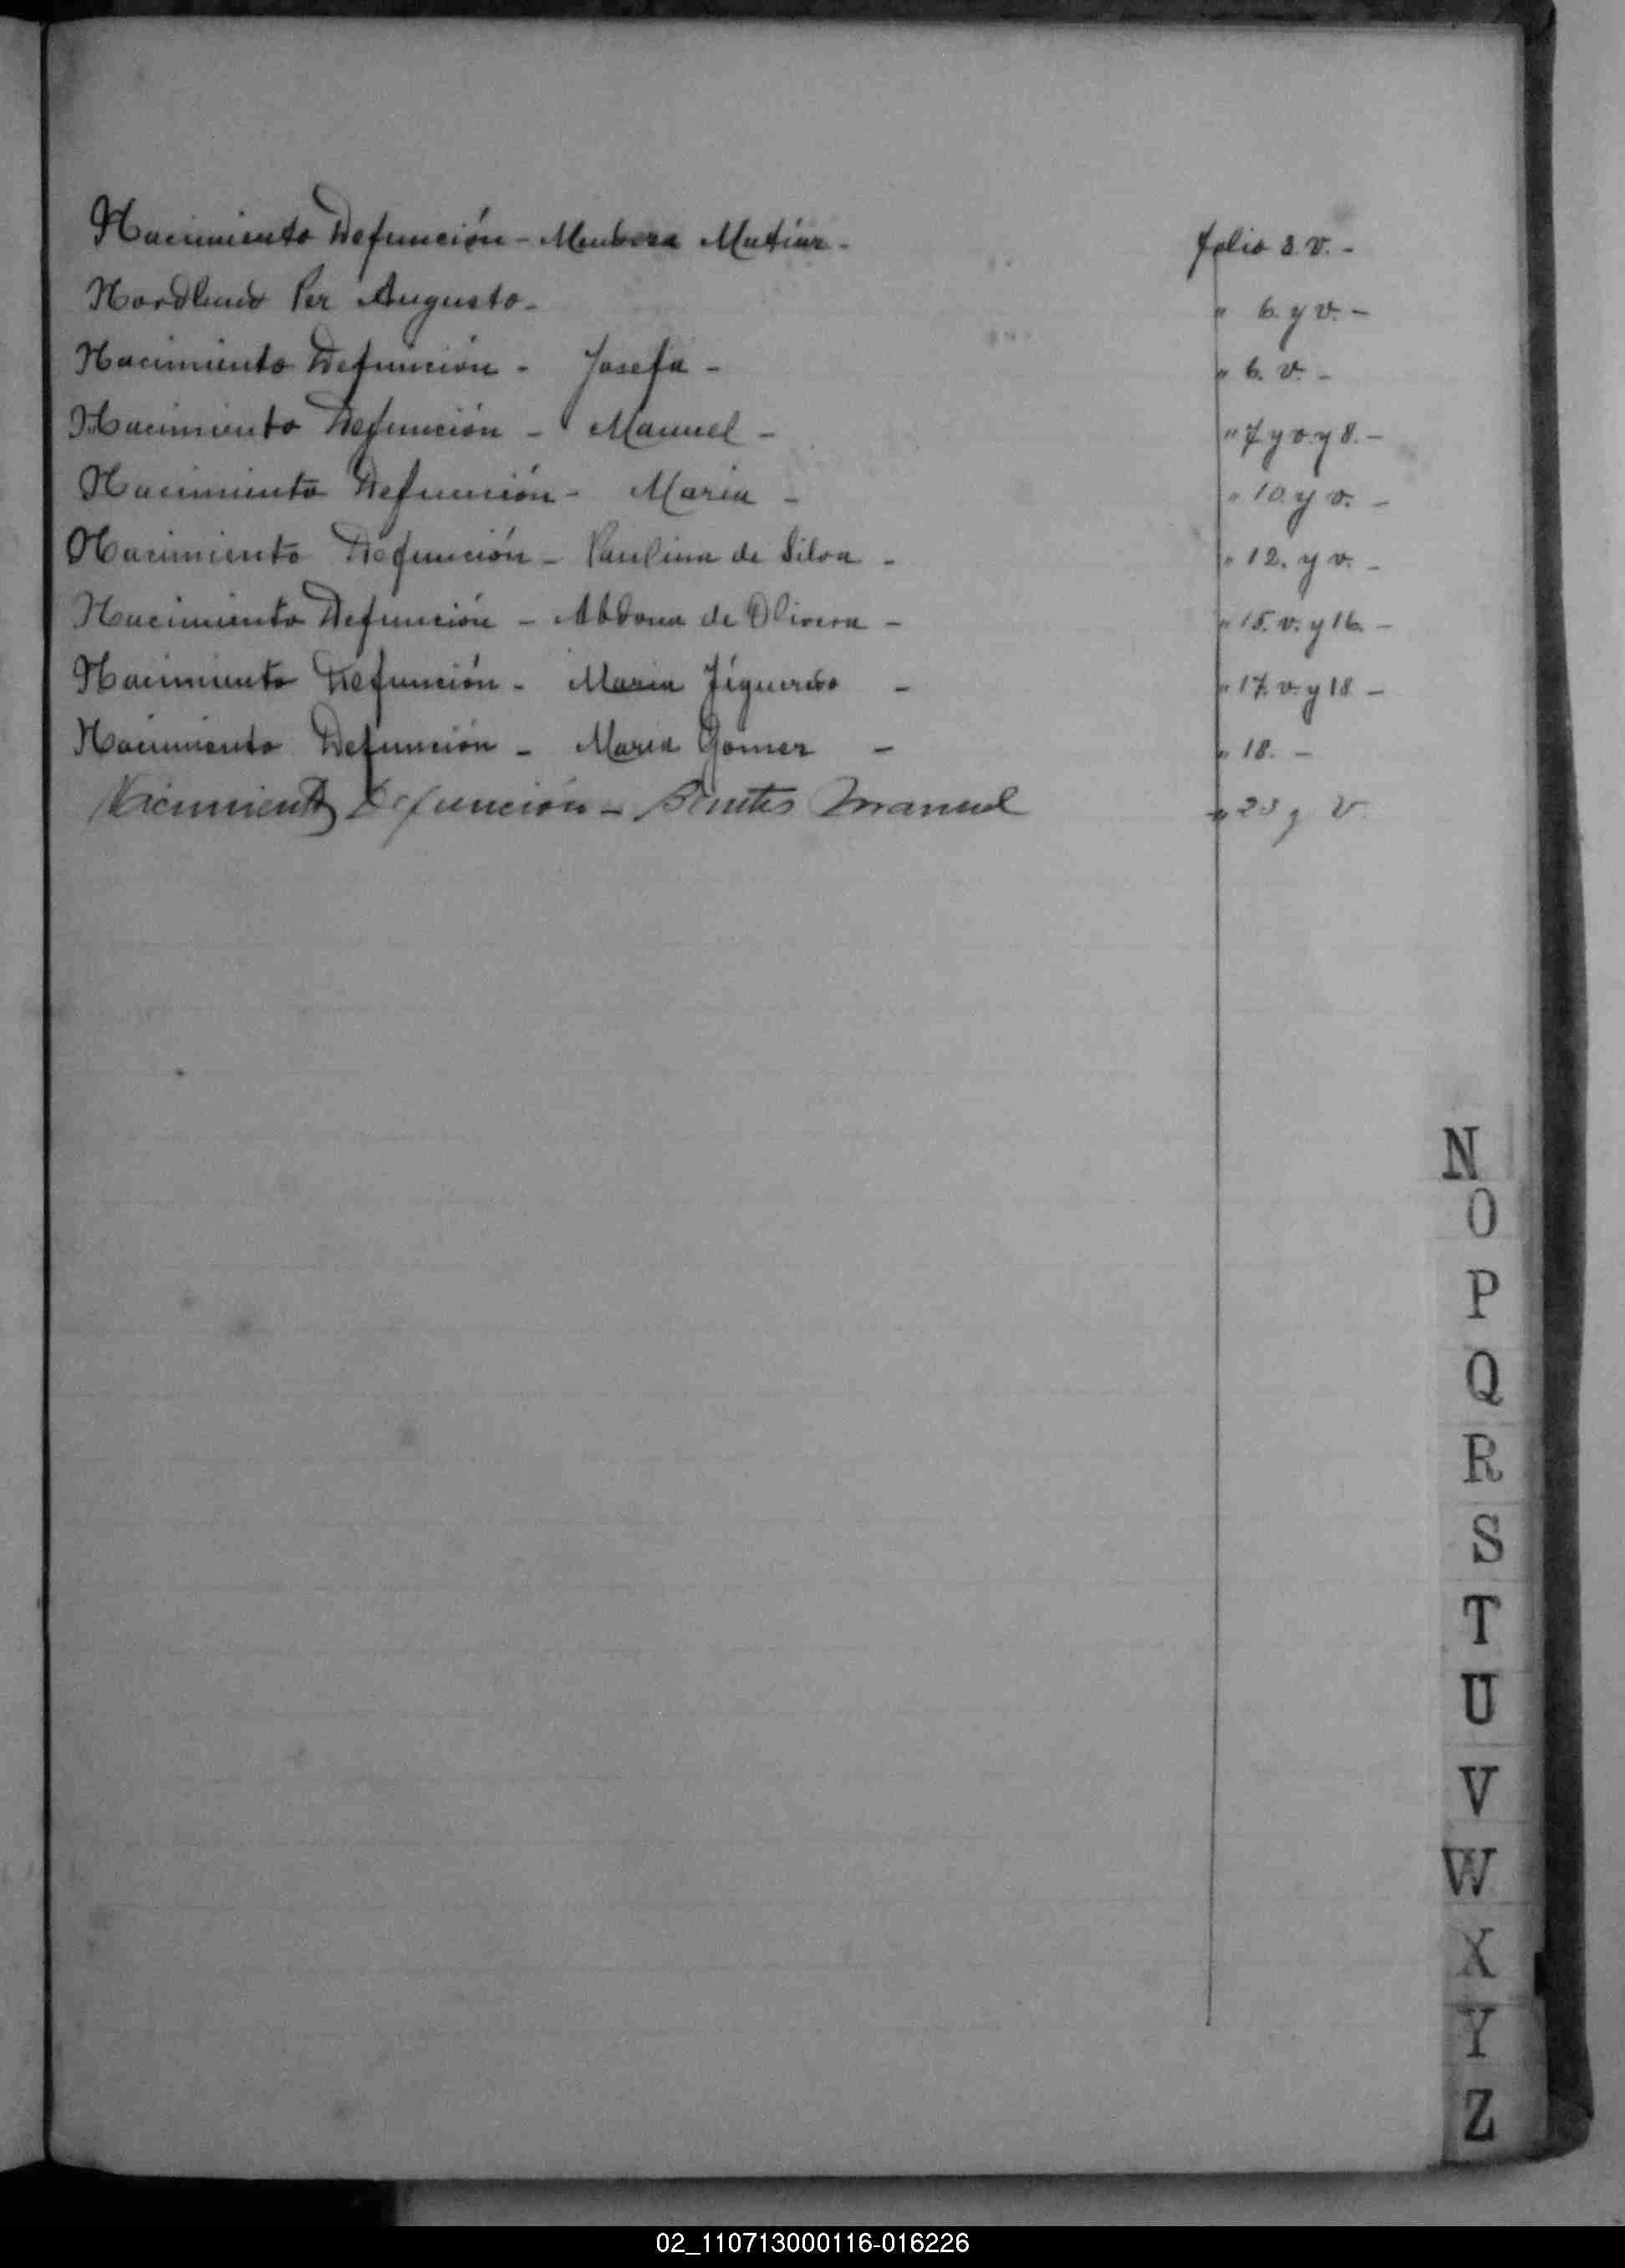 Nacimiento Defunción - Mendoza Matias - folio 3. v. -
Nordlund Per Augusto - " 6. y v. -
Nacimiento Defunción - Josefa - " 6. v. -
Nacimiento Defunción - Manuel - " 7 y v. y 8. -
Nacimiento Defunción - Maria - " 10. y v. -
Nacimiento Defunción - Paulina de Silva - " 12. y v. -
Nacimiento Defunción - Abdona de Olivera - " 15. v. y 16. -
Nacimiento Defunción - Maria Figueredo - " 17. v. y 18 -
Nacimiento Defunción - Maria Gomez - " 18. -
Nacimiento Defunción - Benites Manuel " 23 y V.
N
O
P
Q
R
S
T
U
V
W
X
Y
Z
02_110713000116-016226